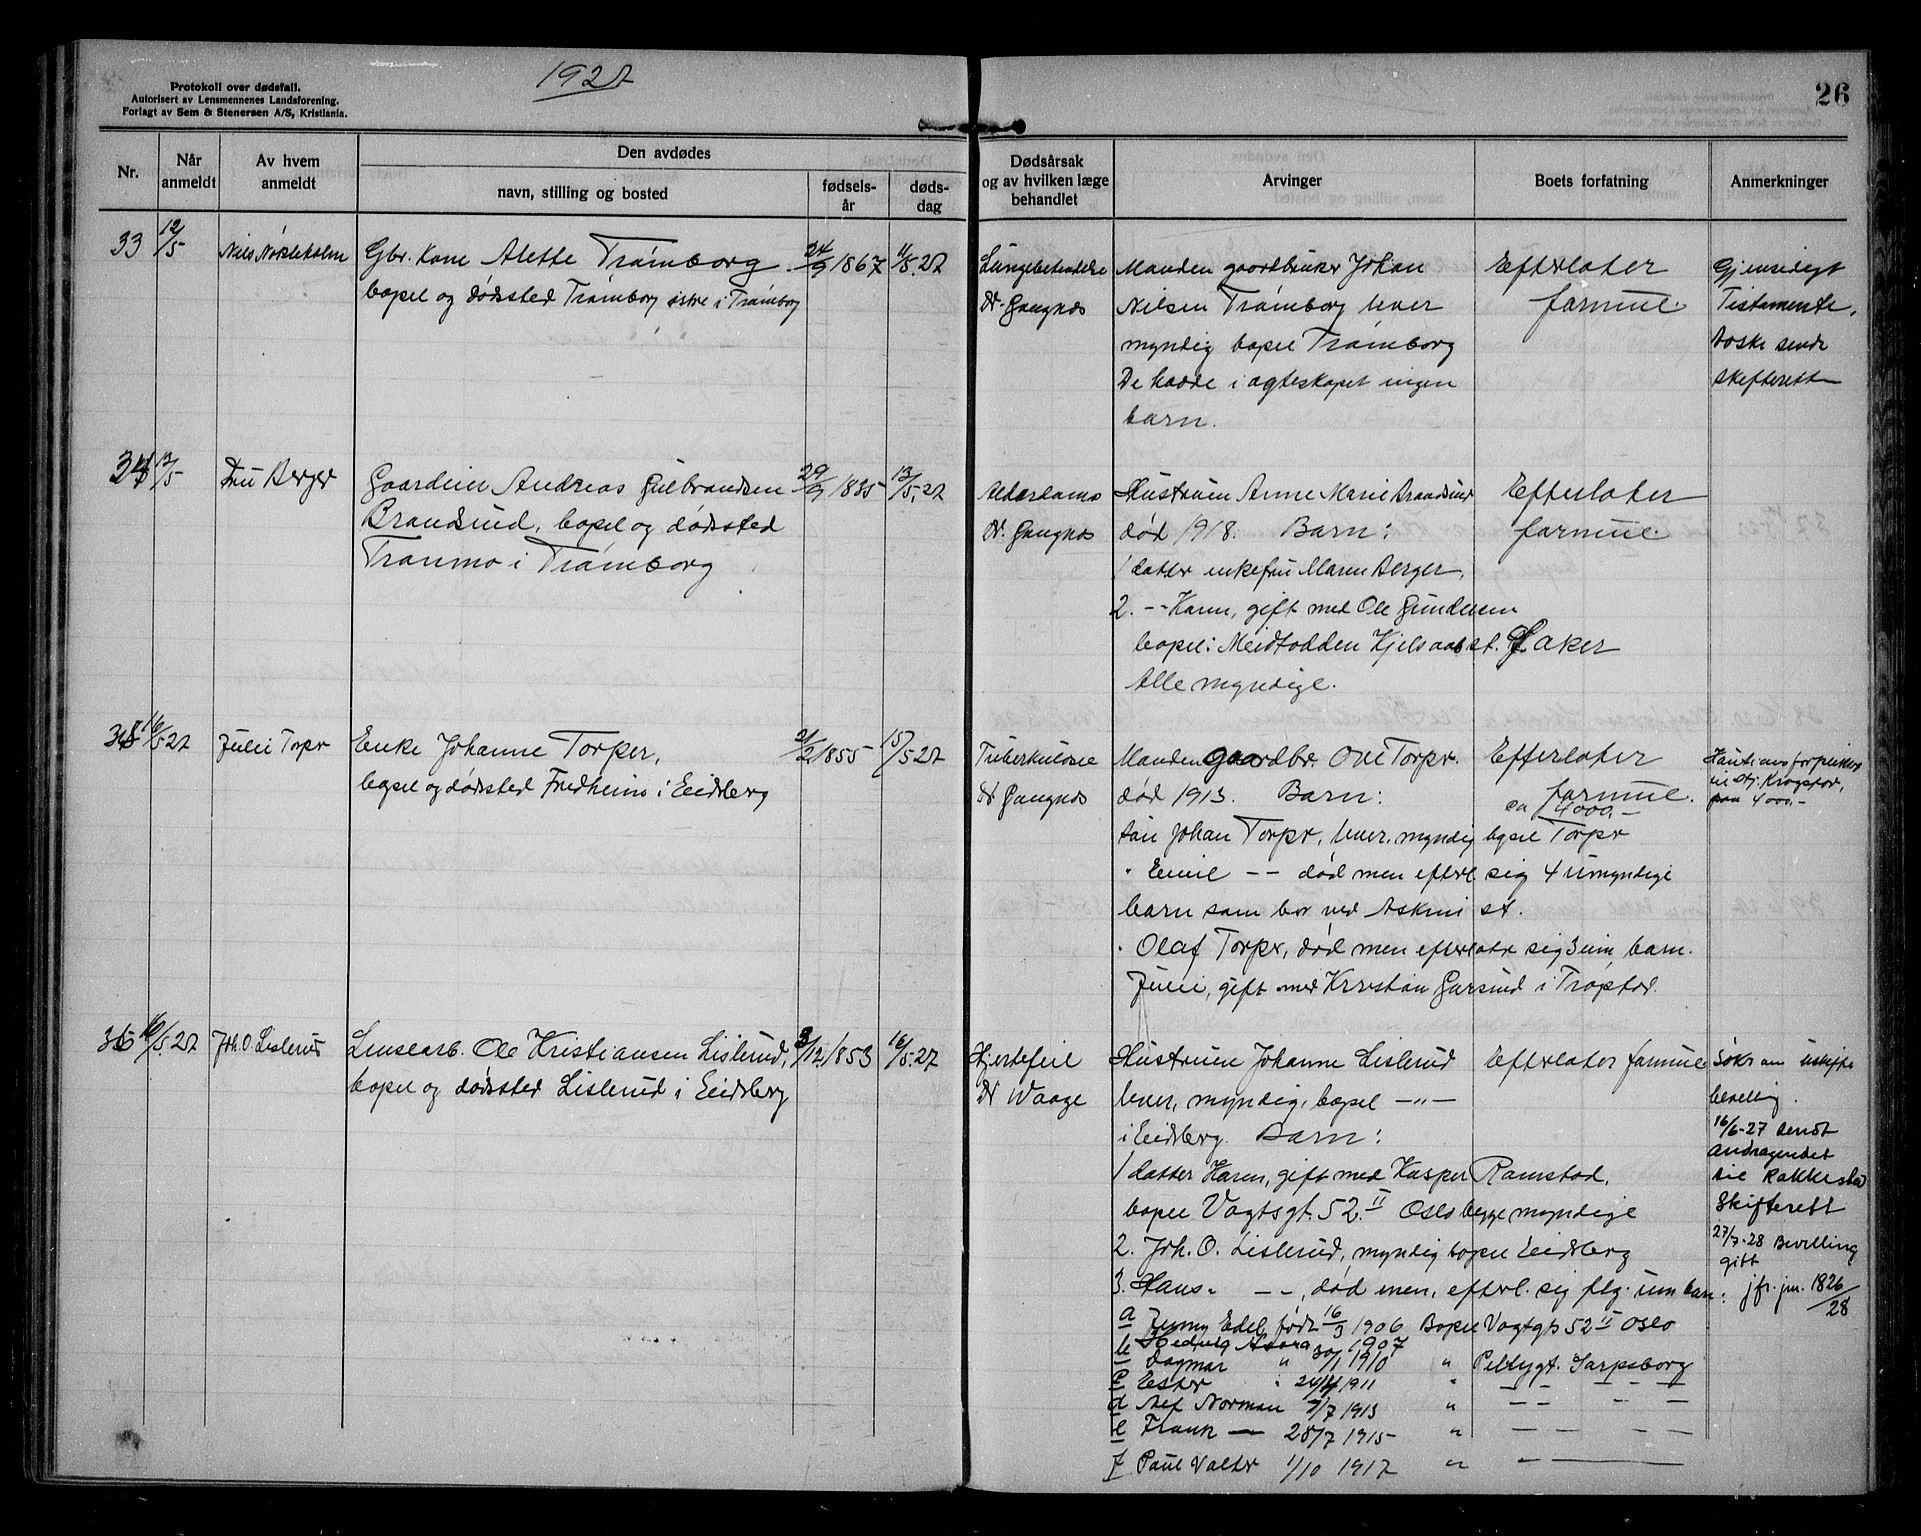 1927
Protokoll over dødsfall.
Autorisert av Lensmennenes Landsforening.
Forlagt av Sem & Stenersen A/S, Kristiania.
26
Nr.
Når anmeldt
Av hvem anmeldt
Den avdødes
navn, stilling og bosted
fødsels-år
døds-dag
Dødsårsak og av hvilken læge behandlet
Arvinger
Boets forfatning
Anmerkninger
33 12/5 Nils
Gbr. Kone Alette Trømborg 24/9 1867 11/5.27
bopel og dødssted Trømborg østre i Trømborg
Lungebetendelse
Dr. Gangnæs
Manden gaardbruker Johan
Nilsen Trømborg lever
myndig bopel Trømborg
De hadde i ægteskapet ingen
barn.
Efterlater
formue.
Gjensidigt
Testamente,
sendt
skifterett
34 13/5 Fru Berger
Gaardeier Andreas Gulbrandsen 29/9 1835 13/5.27
Brandsrud, bopel og dødssted
Tranmo i Trømborg
Alderdoms
Dr. Gangnæs
Hustruen Anne Marie Brandsrud
død 1918. Barn:
1 datter enkefru Maren Berger,
2. -"- Karen, gift med Ole Gundersen
bopel: Kjelsaas st. Aker
Alle myndige.
Efterlater
formue.
35 16/5 27 Julie Torper
Enke Johanne Torper, 2/2 1855 15/5 27
bopel og dødssted Fredheim i Eidsberg
Tuberkulose
Dr Gangnæs
Manden gaardbr. Ole Torper.
død 1913. Barn:
søn Johan Torper, lever, myndig bopel Torper
" Emil -- død men efterl. sig 4 umyndige
barn som bor ved Askim st.
" Olaf Torper, død men efterlater sig 3 um. barn.
Julie, gift med Kristian Gursrud i Trøgstad.
Efterlater
formue.
ca 4000,-
paa 4000,-
36 16/5.27 Joh. O. Lislerud
Lensearb. Ole Kristiansen Lislerud, 3/12 1853 16/5.27
bopel og dødssted Lislerud i Eidsberg
Hjertefeil
Dr Waage
Hustruen Johanne Lislerud
lever, myndig, bopel -"-
i Eidsberg. Barn:
1 datter Karen, gift med Kasper Ramstad,
bopel Vogtsgt. 52 II Oslo begge myndige
2. Joh. O. Lislerud, myndig bopel Eidsberg
3. Hans. --, død men, efterl. sig flg. um barn:
a Jenny Edel, født 16/3 1906 Bopel Vogtgt 52 II Oslo
b Hedvig 1907
Dagmar " 30/1 1910 " Sarpsborg
c Ester " 24/4 1911 " -- -- --
d Alf Norman 7/7 1913 " -- -- --
e Frank — 28/7 1915 " -- -- --
f Paul Valter 1/10 1917 " --
Efterlater formue
Søker om uskifte
bevilling.
16/6-27 Sendt
Andragendet
til Rakkestad
Skifterett
27/7-28 Bevilling
gitt
jfr. jnr. 1826/28